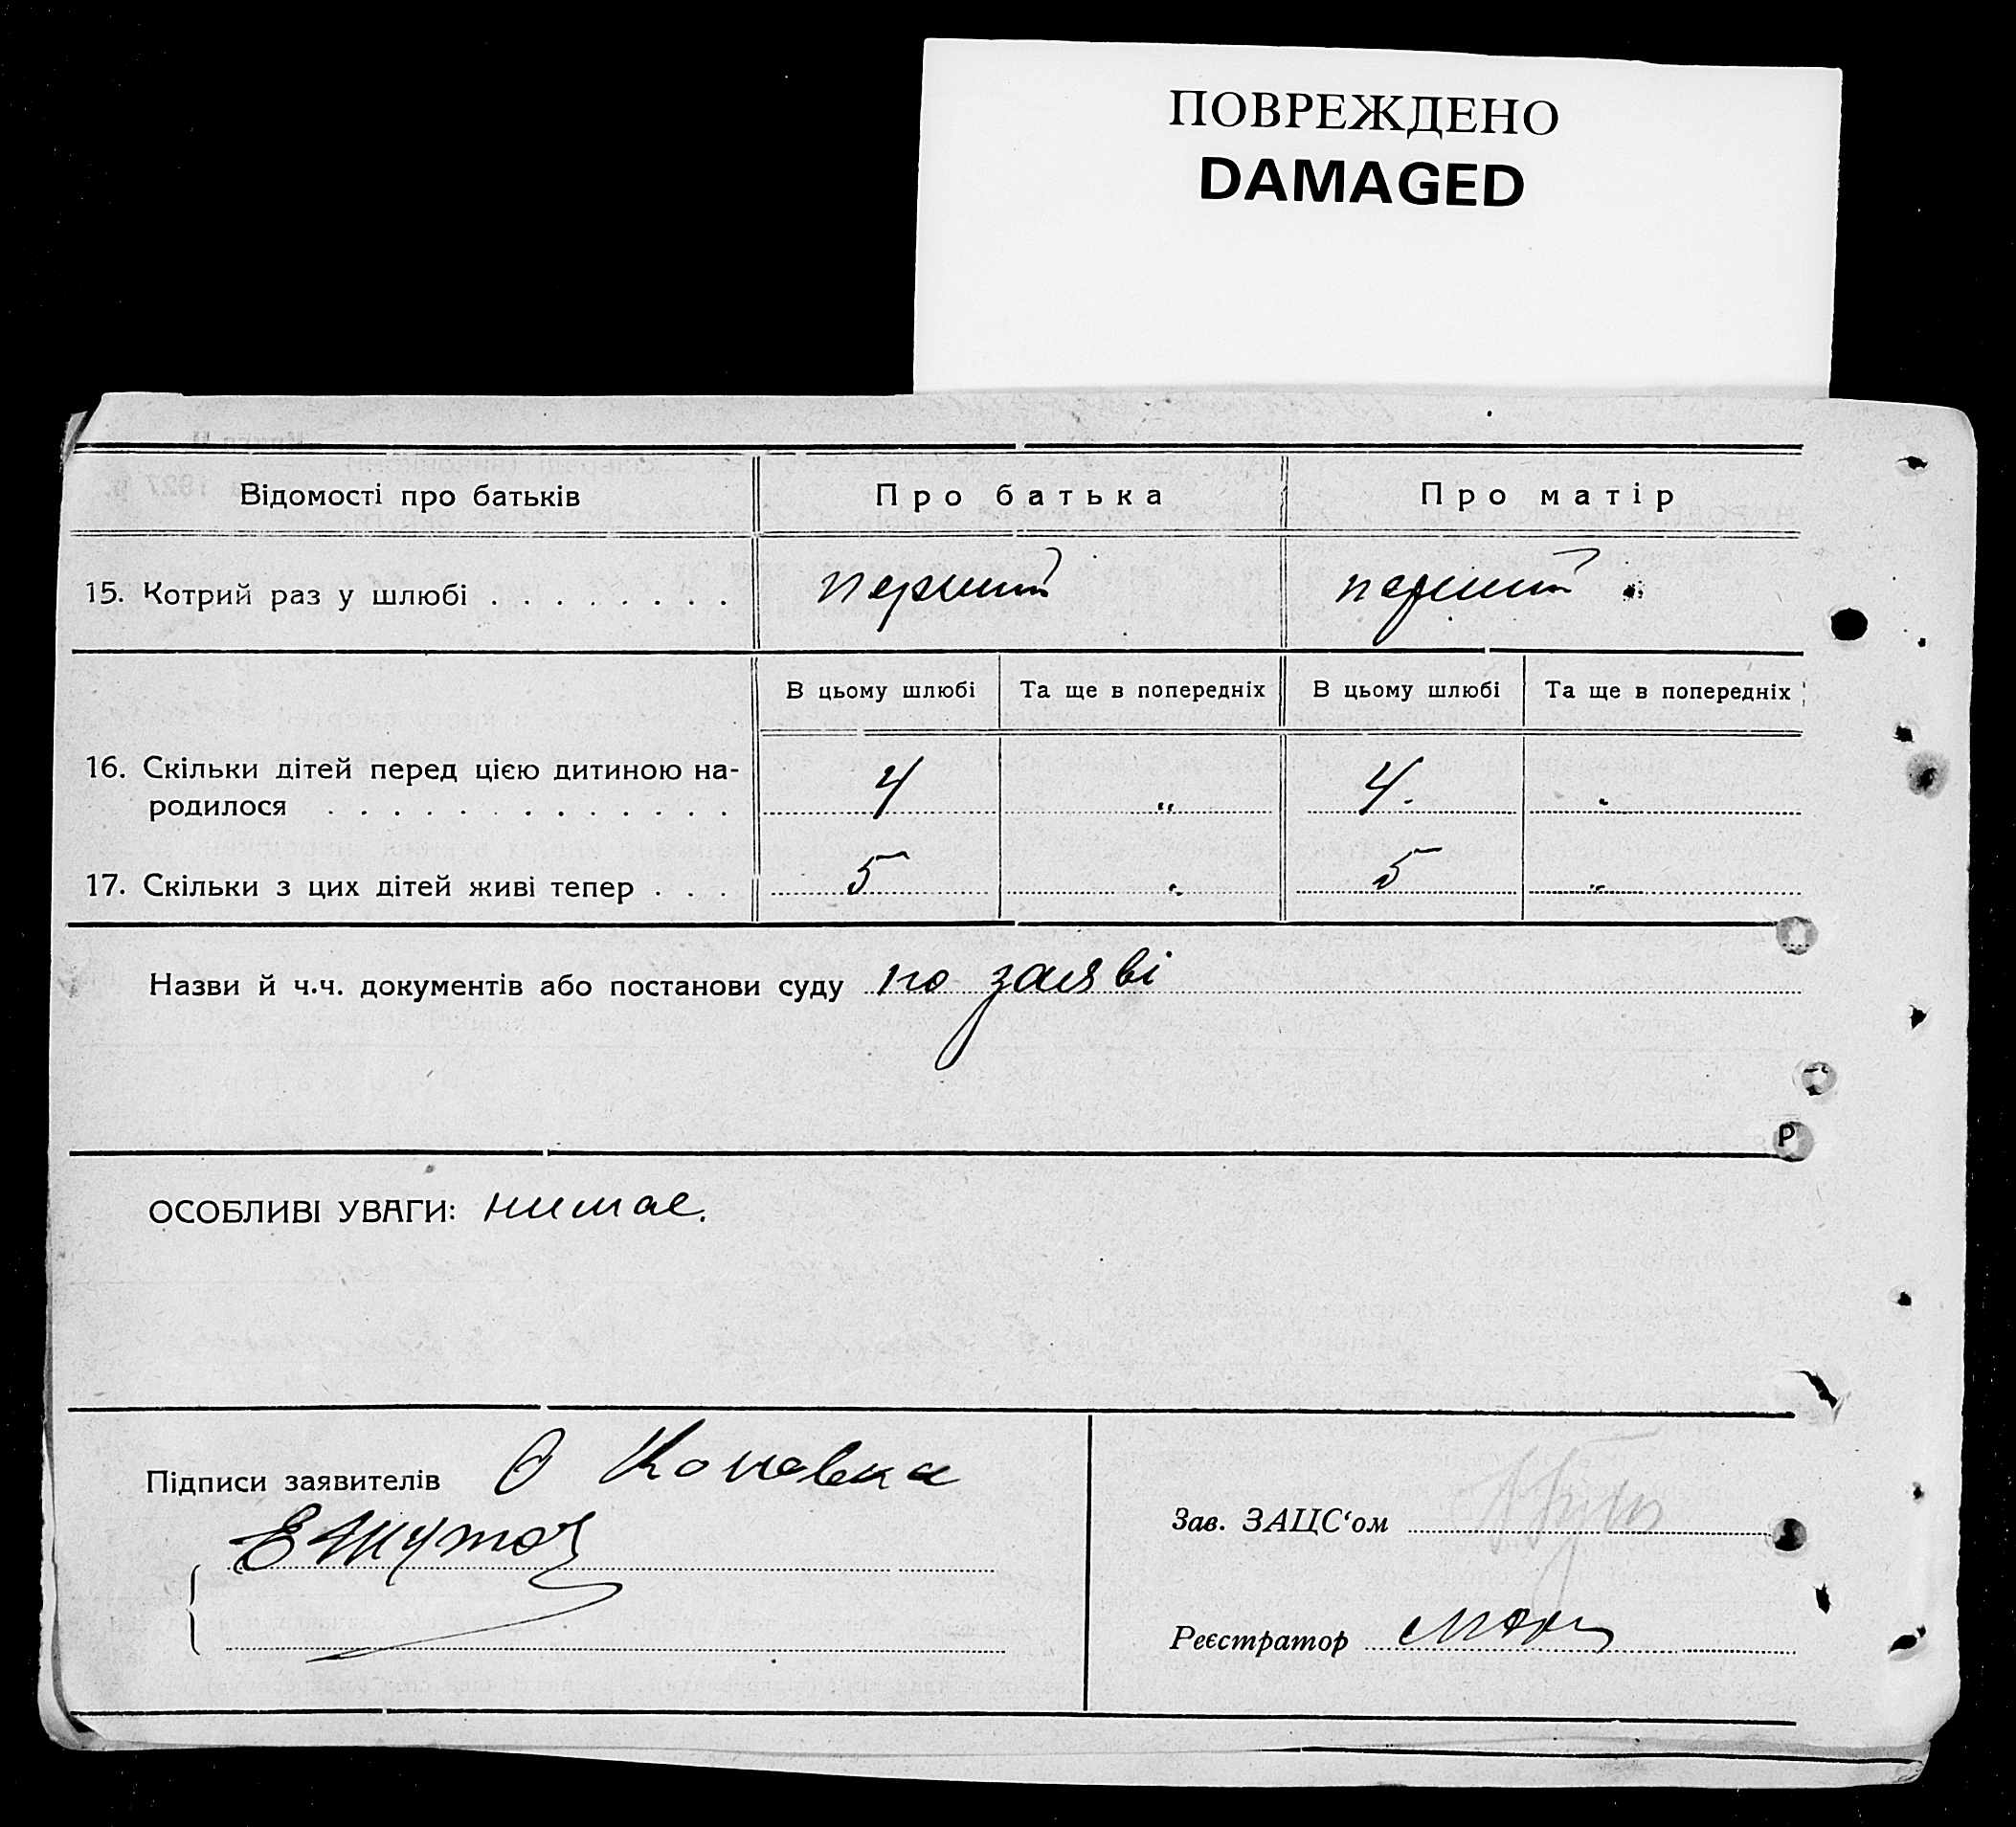 ПОВРЕЖДЕНО
DAMAGED
Відомості про батьків
Про батька
Про матір
15. Котрий раз у шлюбі . . . . . . . .
перший
перший
В цьому шлюбі
Та ще в попередніх
В цьому шлюбі
Та ще в попередніх
16. Скільки дітей перед цією дитиною на-
родилося . . . . . . . . . . . . .
4
"
4.
"
17. Скільки з цих дітей живі тепер . . .
5
"
5
"
Назви й ч.ч. документів або постанови суду по заяві
Р
ОСОБЛИВІ УВАГИ: нимае.
Підписи заявителів
Зав. ЗАЦС‘ом
Реєстратор